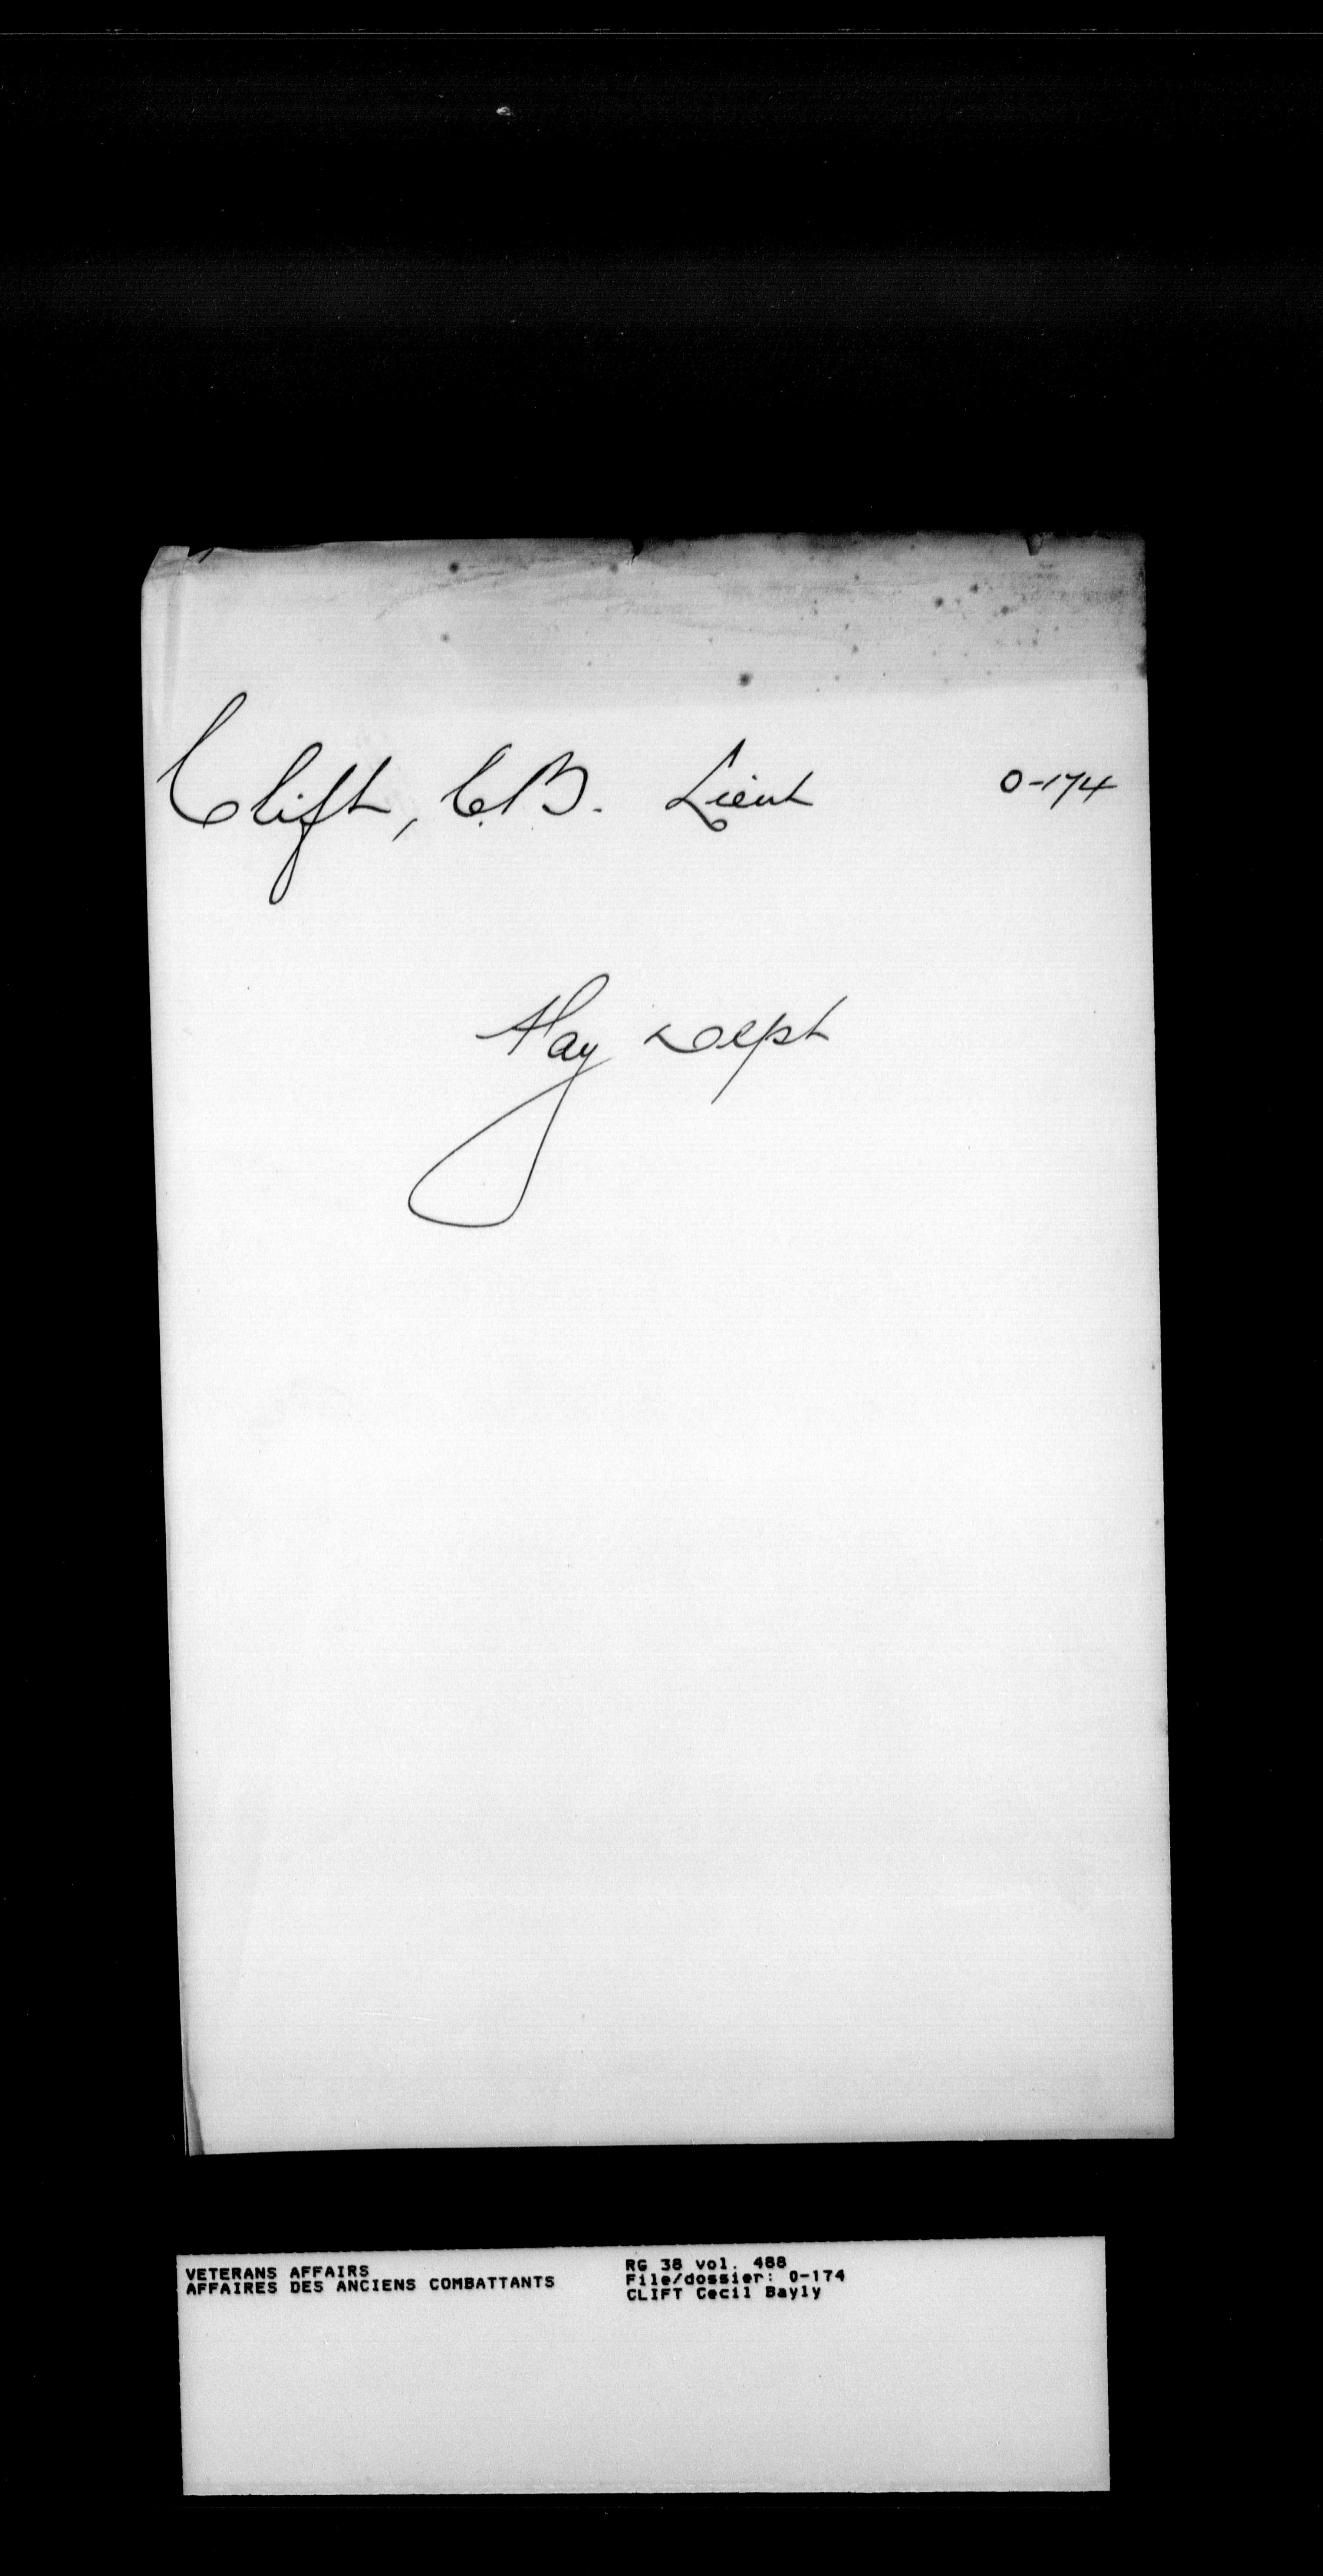 Clift, C.B. Lieut 0-174
Pay Dept
VETERANS AFFAIRS
AFFAIRES DES ANCIENS COMBATTANTS
RG 38 vol. 488
File/dossier: 0-174
CLIFT Cecil Bayly